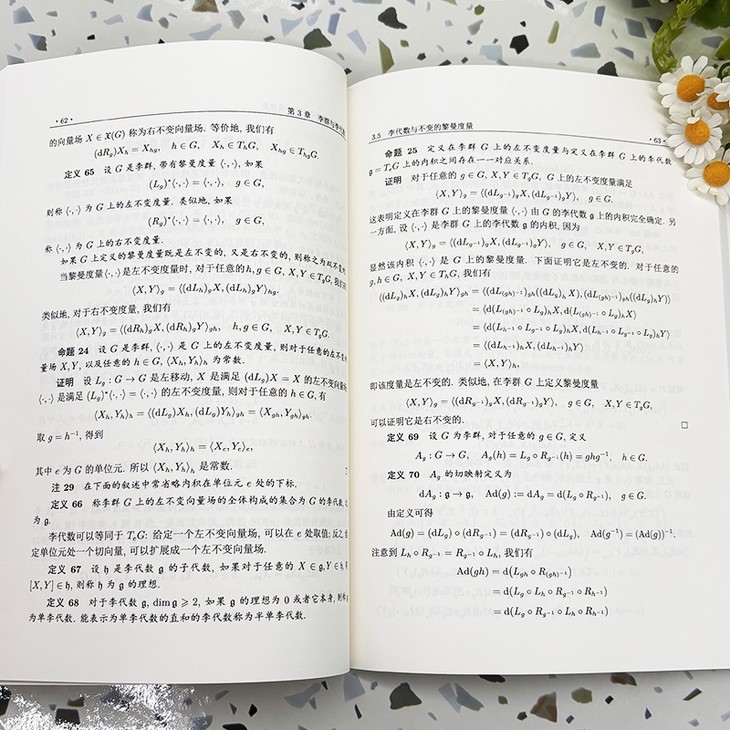 · 62 ·
第 3 章 李群与李代数
的向量场 X ∈ 𝔛(G) 称为右不变向量场. 等价地, 我们有
(dR_g)X_h = X_{hg}, h ∈ G, X_h ∈ T_hG, X_{hg} ∈ T_{hg}G.
定义 65 设 G 是李群, 带有黎曼度量 ⟨·,·⟩, 如果
(L_g)*⟨·,·⟩ = ⟨·,·⟩, g ∈ G,
则称 ⟨·,·⟩ 为 G 上的左不变度量. 类似地, 如果
(R_g)*⟨·,·⟩ = ⟨·,·⟩, g ∈ G,
称 ⟨·,·⟩ 为 G 上的右不变度量.
如果 G 上定义的黎曼度量既是左不变的, 又是右不变的, 则称之为双不变
当黎曼度量⟨·,·⟩ 是左不变度量时, 对于任意的 h, g ∈ G, X, Y ∈ T_gG, 我们
⟨X,Y⟩_g = ⟨(dL_h)_gX, (dL_h)_gY⟩_{hg}.
类似地, 对于右不变度量, 我们有
⟨X,Y⟩_g = ⟨(dR_h)_gX, (dR_h)_gY⟩_{gh}, h, g ∈ G, X, Y ∈ T_gG.
命题 24 设 G 是李群, ⟨·,·⟩ 是 G 上的左不变度量, 则对于任意的左不变
量场 X, Y, 以及任意的 h ∈ G, ⟨X_h, Y_h⟩_h 为常数.
证明 设 L_g : G → G 是左移动, X 是满足 (dL_g)X = X 的左不变向量
⟨·,·⟩ 是满足 (L_g)*⟨·,·⟩ = ⟨·,·⟩ 的左不变度量, 则对于任意的 h ∈ G, 有
⟨X_h, Y_h⟩_h = ⟨(dL_g)X_h, (dL_g)Y_h⟩_{gh} = ⟨X_{gh}, Y_{gh}⟩_{gh}.
取 g = h⁻¹, 得到
⟨X_h, Y_h⟩_h = ⟨X_e, Y_e⟩_e,
其中 e 为 G 的单位元. 所以 ⟨X_h, Y_h⟩_h 是常数.
注 29 在下面的叙述中常省略内积在单位元 e 处的下标.
定义 66 称李群 G 上的左不变向量场的全体构成的集合为 G 的李代数,
为 𝔤.
李代数可以等同于 T_eG: 给定一个左不变向量场, 可以在 e 处取值; 反之, 给
定单位元处一个切向量, 可以扩展成一个左不变向量场.
定义 67 设 𝔥 是李代数 𝔤 的子代数, 如果对于任意的 X ∈ 𝔤, Y ∈ 𝔥, 有
[X, Y] ∈ 𝔥, 则称 𝔥 为 𝔤 的理想.
定义 68 对于李代数 𝔤, dim 𝔤 ⩾ 2, 如果 𝔤 的理想为 0 或者它本身, 则称
为单李代数. 能表示为单李代数的直和的李代数称为半单李代数.
3.5 李代数与不变的黎曼度量
· 63 ·
命题 25 定义在李群 G 上的左不变度量与定义在李群 G 上的李代数
𝔤 = T_eG 上的内积之间存在一一对应关系.
证明 对于任意的 g ∈ G, X, Y ∈ T_gG, G 上的左不变度量满足
⟨X,Y⟩_g = ⟨(dL_{g⁻¹})_gX, (dL_{g⁻¹})_gY⟩, g ∈ G.
这表明定义在李群 G 上的黎曼度量 ⟨·,·⟩ 由 G 的李代数 𝔤 上的内积完全确定. 另
一方面, 设 ⟨·,·⟩ 是李群 G 上的李代数 𝔤 的内积, 因为
⟨X,Y⟩_g = ⟨(dL_{g⁻¹})_gX, (dL_{g⁻¹})_gY⟩, g ∈ G, X, Y ∈ T_gG,
显然该内积 ⟨·,·⟩ 是 G 上的黎曼度量. 下面证明它是左不变的. 对于任意的
g, h ∈ G, X, Y ∈ T_hG, 我们有
⟨(dL_g)_hX, (dL_g)_hY⟩_{gh} = ⟨(dL_{(gh)⁻¹})_{gh}((dL_g)_hX), (dL_{(gh)⁻¹})_{gh}((dL_g)_hY)⟩
= ⟨d(L_{(gh)⁻¹} ∘ L_g)_hX, d(L_{(gh)⁻¹} ∘ L_g)_hX⟩
= ⟨d(L_{h⁻¹} ∘ L_{g⁻¹} ∘ L_g)_hX, d(L_{h⁻¹} ∘ L_{g⁻¹} ∘ L_g)_hY⟩
= ⟨(dL_{h⁻¹})_hX, (dL_{h⁻¹})_hY⟩
= ⟨X,Y⟩_h,
即该度量是左不变的. 类似地, 在李群 G 上定义黎曼度量
⟨X,Y⟩_g = ⟨(dR_{g⁻¹})_gX, (dR_{g⁻¹})_gY⟩, g ∈ G, X, Y ∈ T_gG,
可以证明它是右不变的. □
定义 69 设 G 为李群, 对于任意的 g ∈ G, 定义
A_g : G → G, A_g(h) = L_g ∘ R_{g⁻¹}(h) = ghg⁻¹, h ∈ G.
定义 70 A_g 的切映射定义为
dA_g : 𝔤 → 𝔤, Ad(g) := dA_g = d(L_g ∘ R_{g⁻¹}), g ∈ G.
由定义可得
Ad(g) = (dL_g) ∘ (dR_{g⁻¹}) = (dR_{g⁻¹}) ∘ (dL_g), Ad(g⁻¹) = (Ad(g))⁻¹.
注意到 L_h ∘ R_{g⁻¹} = R_{g⁻¹} ∘ L_h, 我们有
Ad(gh) = d(L_{gh} ∘ R_{(gh)⁻¹})
= d(L_g ∘ L_h ∘ R_{g⁻¹} ∘ R_{h⁻¹})
= d(L_g ∘ R_{g⁻¹} ∘ L_h ∘ R_{h⁻¹})